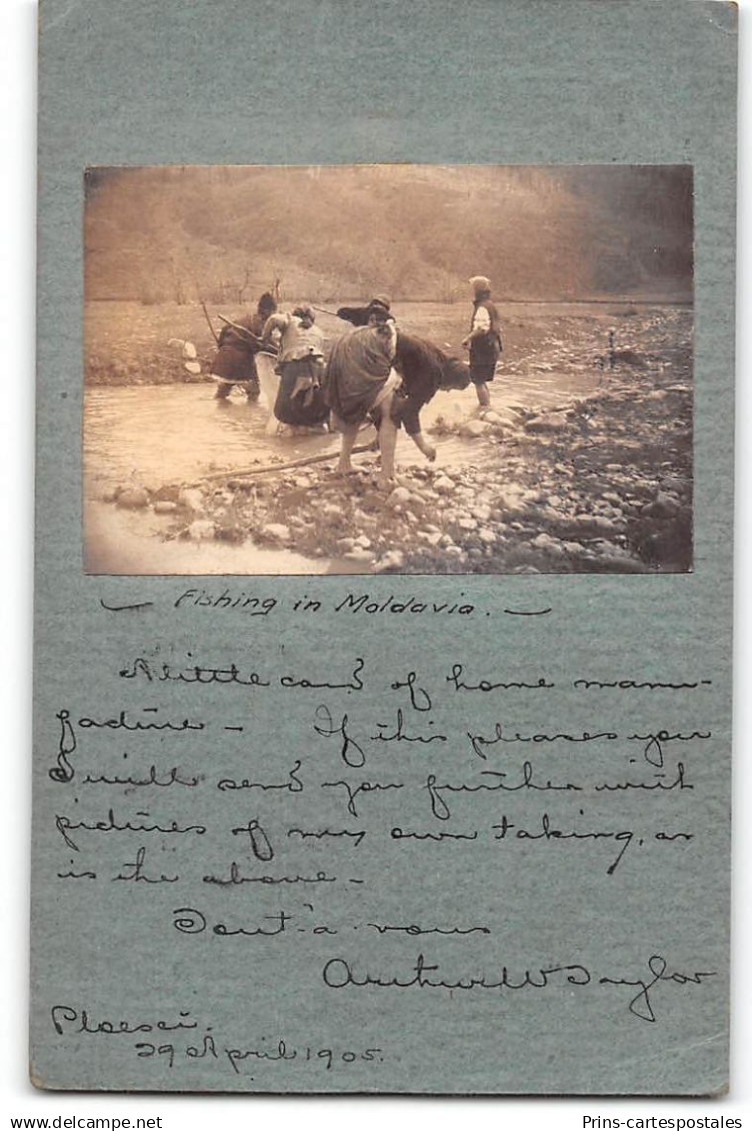 Fishing in Moldavia.
A little card of home manu-
facture - If this pleases you
I will send you further with
pictures of my own taking, as
is the above -
Tout-à-vous
Arthur W Taylor
Ploesci.
29 April 1905.
delcampe.net
Prins-cartespostales